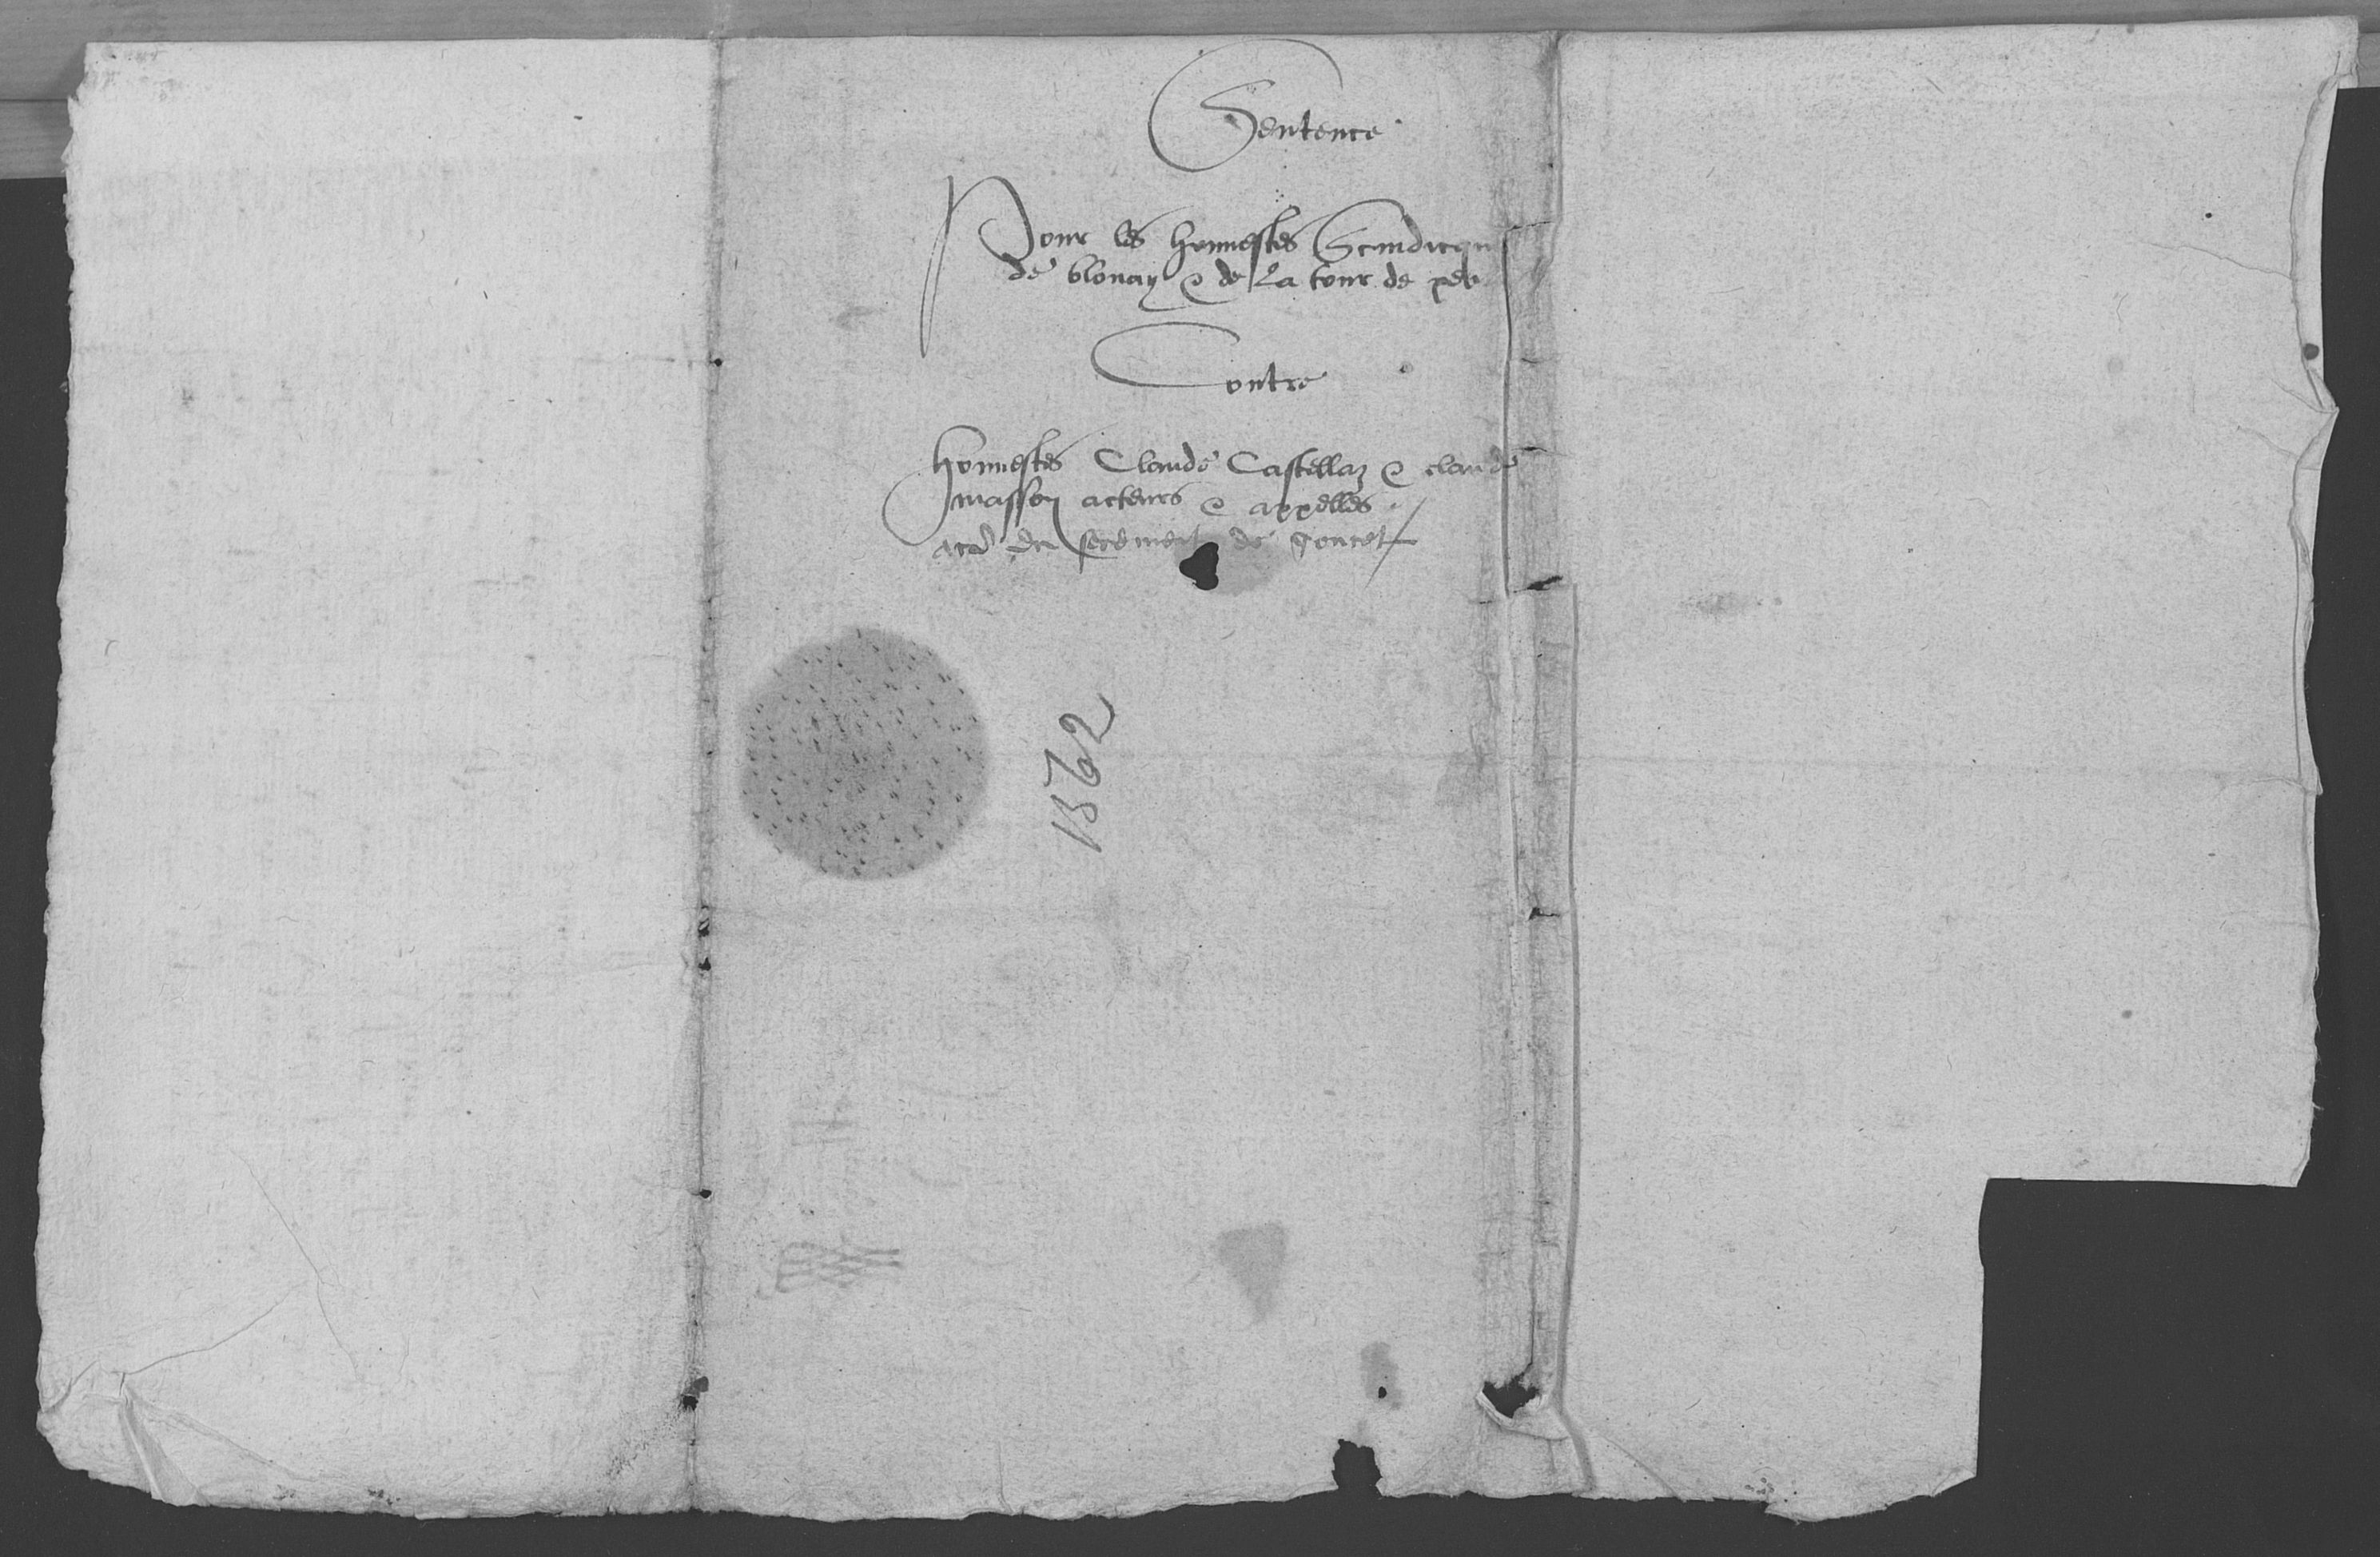 Sentence
Pour les honnestes Scindicqu
de blonay & de La tour de pel
Contre
honnestes Claude Castellaz & claude
masson acteurs & appelles
du serement de
1562